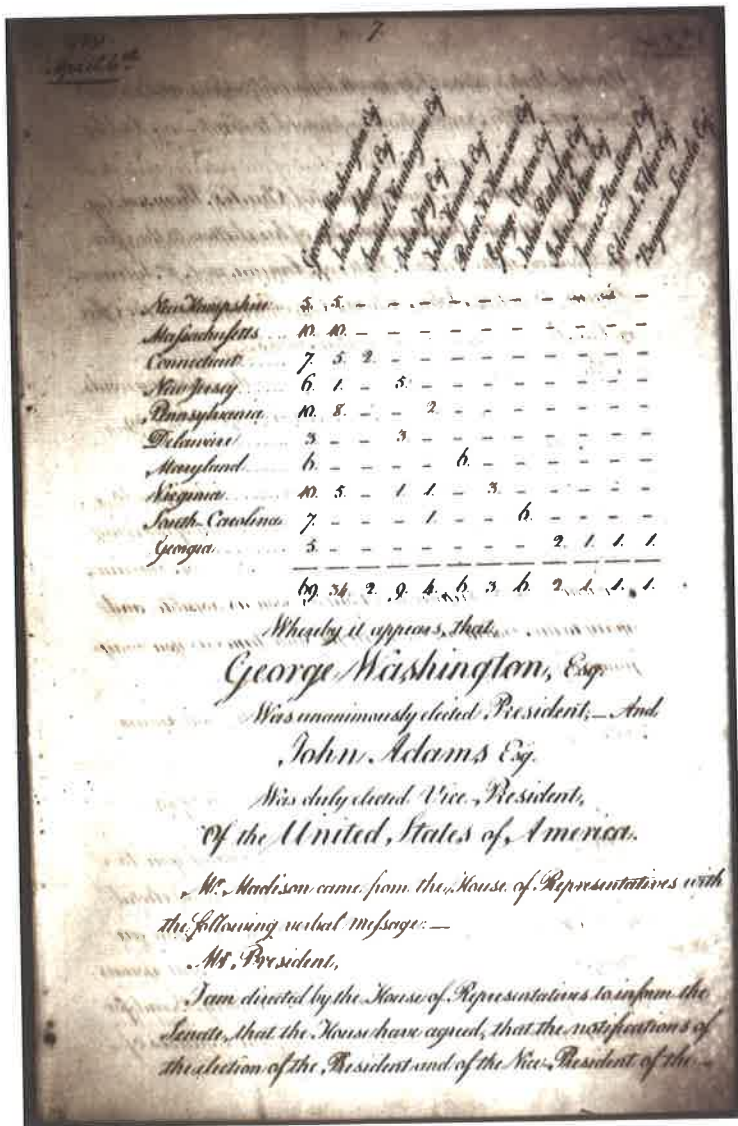 7.
April 6th
George Washington Esq
John Adams Esq
Samuel Huntington Esq
John Jay Esq
John Hancock Esq
Robert H. Harrison Esq
George Clinton Esq
John Rutledge Esq
John Milton Esq
James Armstrong Esq
Edward Telfair Esq
Benjamin Lincoln Esq
New Hampshire 5. 5. – – – – – – – – – –
Massachusetts 10. 10. – – – – – – – – – –
Connecticut 7. 5. 2. – – – – – – – – –
New Jersey 6. 1. – 5. – – – – – – – –
Pennsylvania 10. 8. – – 2. – – – – – – –
Delaware 3. – – 3. – – – – – – – –
Maryland 6. – – – – 6. – – – – – –
Virginia 10. 5. – 1. 1. – 3. – – – – –
South-Carolina 7. – – – 1. – – 6. – – – –
Georgia 5. – – – – – – – 2. 1. 1. 1.
69. 34. 2. 9. 4. 6. 3. 6. 2. 1. 1. 1.
Whereby it appears, that,
George Washington, Esq.
Was unanimously elected President,— And
John Adams Esq.
Was duly elected Vice-President,
Of the United States of America.
Mr. Madison came from the House of Representatives with
the following verbal message:—
Mr. President,
I am directed by the House of Representatives to inform the
Senate, that the House have agreed, that the notifications of
the election of the President and of the Vice-President of the—